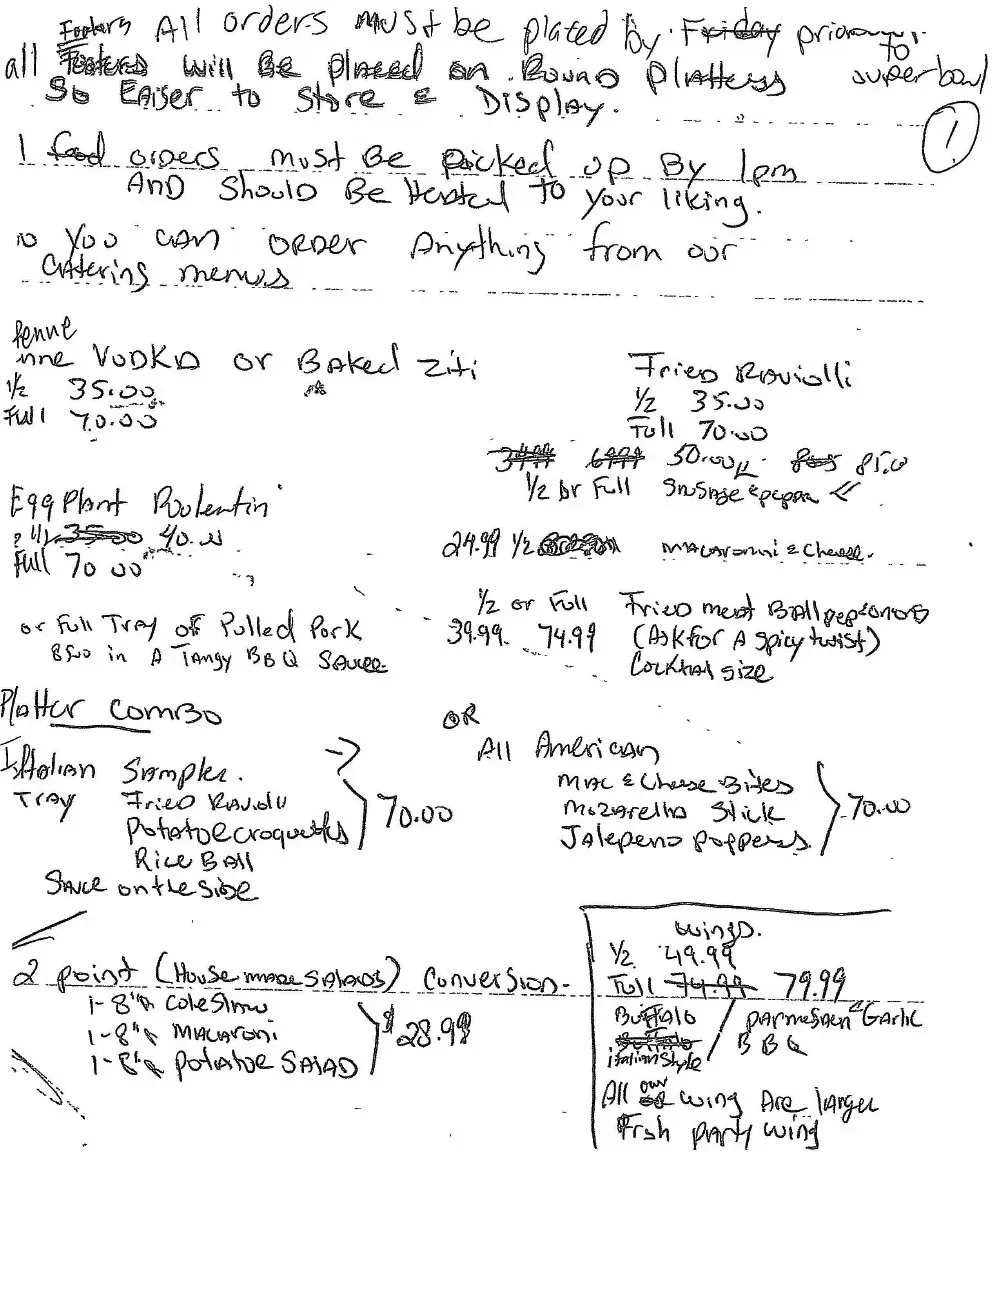 All orders must be plated by Friday prior to
all will Be placed on Round Platters superbowl
So Eaiser to Store & Display.
1
1 food orders must Be picked up By 1pm
AND Should Be Heated To your liking.
You CAN ORDER Anything from our
CAtering menus
Penne
nne VODKA or BAked Ziti
1/2 35.00
Full 70.00
Fried Raviolli
1/2 35.00
Full 70.00
34.99 69.99 50.00 85.0
1/2 or Full SAusage & pepper
Egg Plant Roulentin
1/2 35.00 40.00
Full 70 00
24.99 1/2 MACAronni & Cheese.
1/2 or Full Fried meat BAll pepperonis
39.99. 74.99 (Ask for A spicy twist)
Cocktail size
or Full Tray of Pulled Pork
85.00 in A TANgy BBQ SAuce
Platter comBo
Ithalian Sampler.
Tray Fried Raviolli
Potatoe croquettes
Rice BAll
70.00
SAuce on the side
OR
All AmericAn
MAC & Cheese Bites
Mozarella Stick
Jalepeno poppers
70.00
2 point (House made SAlads) Conversion.
1-8" Coleslaw
1-8" MACAroni
1-8" Potatoe SAlAD
$28.99
wings.
1/2 49.99
Full 74.99 79.99
Buffalo
Buffalo
italian Style
parmesaen & Garlic
BBQ
All our wing Are larger
Frsh pARty wing